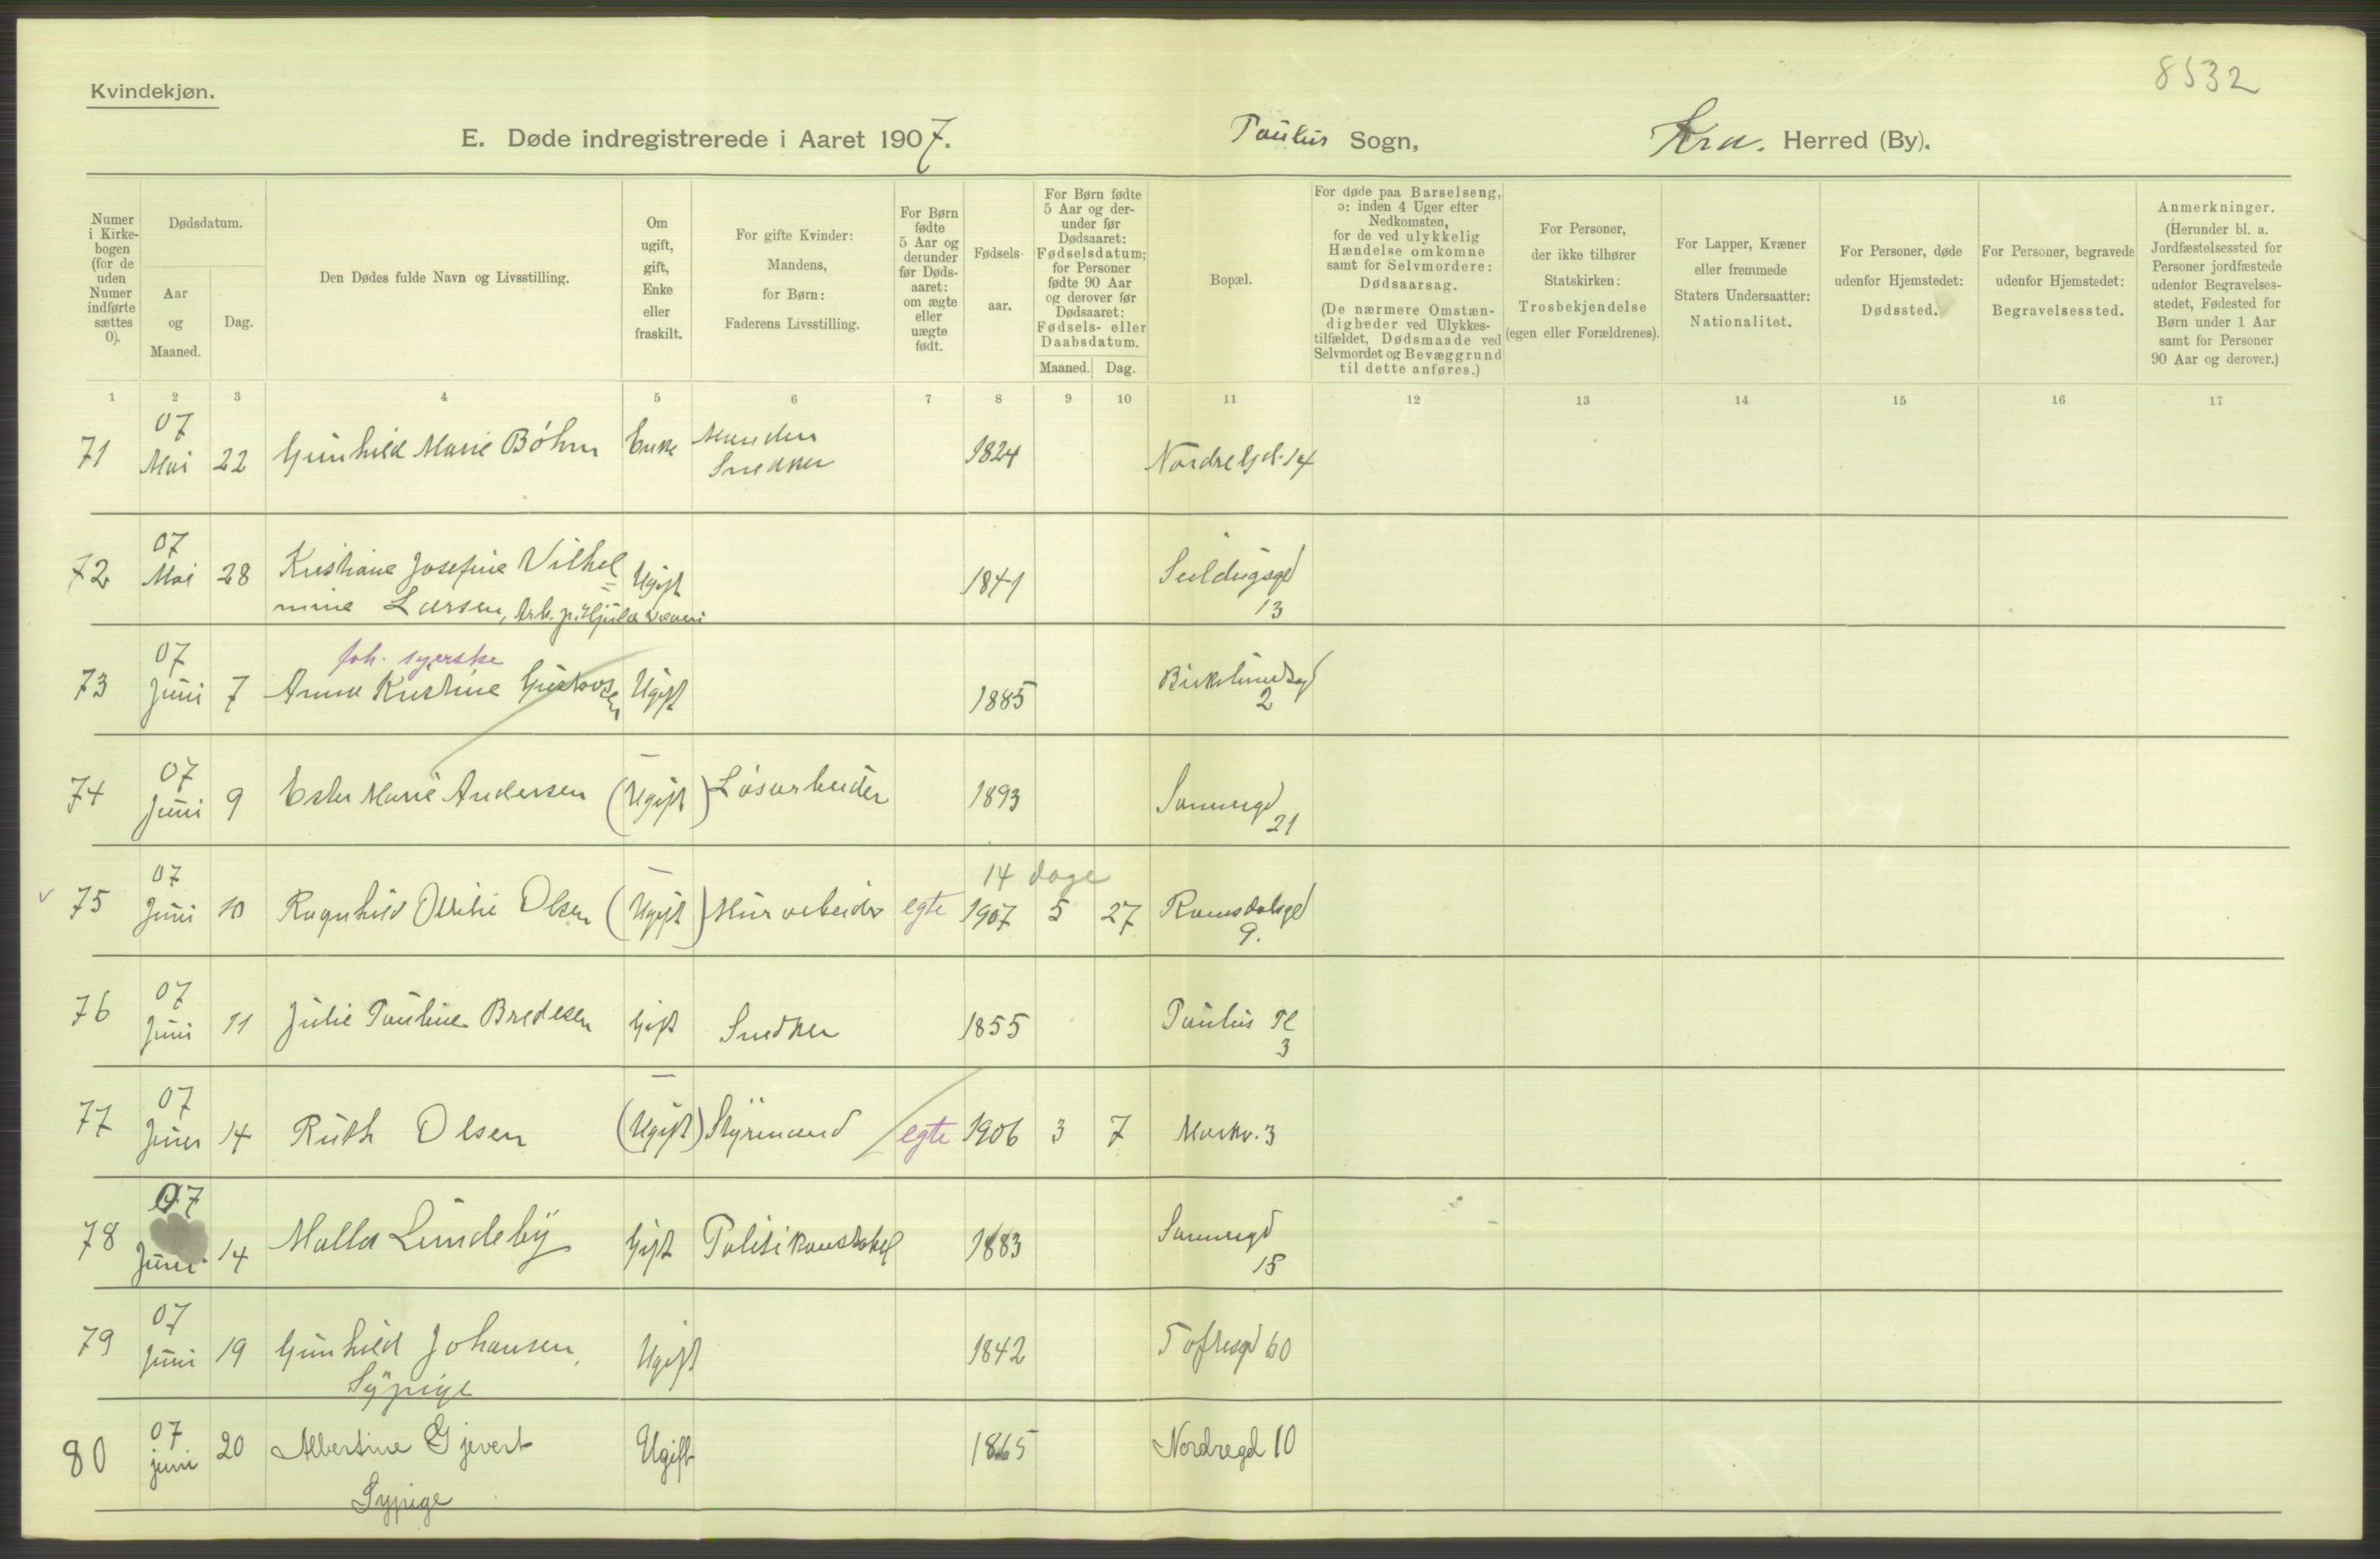 8532
Kvindekjøn.
E. Døde indregistrerede i Aaret 1907. Paulus Sogn, Kra. Herred (By).
Numer i Kirkebogen (for de uden Numer indførte sættes 0).
Dødsdatum.
Aar og Maaned.
Dag.
Den Dødes fulde Navn og Livsstilling.
Om ugift, gift, Enke eller fraskilt.
For gifte Kvinder: Mandens, for Børn: Faderens Livsstilling.
For Børn fødte 5 Aar og derunder før Dødsaaret: om ægte eller uægte født.
Fødselsaar.
For Børn fødte 5 Aar og derunder før Dødsaaret: Fødselsdatum; for Personer fødte 90 Aar og derover før Dødsaaret: Fødsels- eller Daabsdatum.
Maaned. Dag.
Bopæl.
For døde paa Barselseng, ɔ: inden 4 Uger efter Nedkomsten, for de ved ulykkelig Hændelse omkomne samt for Selvmordere: Dødsaarsag.
(De nærmere Omstændigheder ved Ulykkestilfældet, Dødsmaade ved Selvmordet og Bevæggrund til dette anføres.)
For Personer, der ikke tilhører Statskirken: Trosbekjendelse (egen eller Forældrenes).
For Lapper, Kvæner eller fremmede Staters Undersaatter: Nationalitet.
For Personer, døde udenfor Hjemstedet: Dødssted.
For Personer, begravede udenfor Hjemstedet: Begravelsessted.
Anmerkninger. (Herunder bl. a. Jordfæstelsessted for Personer jordfæstede udenfor Begravelsesstedet, Fødested for Børn under 1 Aar samt for Personer 90 Aar og derover.)
1 2 3 4 5 6 7 8 9 10 11 12 13 14 15 16 17
71 07 Mai 22 Gunhild Marie Bøhm Enke Manden Snedker 1824 Nordre Gd. 14
72 07 Mai 28 Kristiane Josefine Vilhel= Ugift 1841 Seildugsgd 13
mine Larsen, Arb. p. Hjula Væveri
fab. syerske
73 07 Juni 7 Anna Kristine Gustavsen Ugift 1885 Birkelundsgd 2
74 07 Juni 9 Ester Marie Andersen (Ugift) Løsarbeider 1893 Sannergd 21
14 dage
75 07 Juni 10 Ragnhild Otilie Olsen (Ugift) Murarbeider egte 1907 5 27 Romsdalsgd 9.
76 07 Juni 11 Julie Pauline Bredesen Gift Snedker 1855 Paulus Pl 3
77 07 Juni 14 Ruth Olsen (Ugift) Styrmand egte 1906 3 7 Markv. 3
78 07 Juni 14 Malla Lundeby Gift Politikonstabel 1883 Sannergd 15
79 07 Juni 19 Gunhild Johansen, Ugift 1842 Toftesgd 60
Sypige
80 07 juni 20 Albertine Gjevert Ugift 1865 Nordregd 10
Sypige